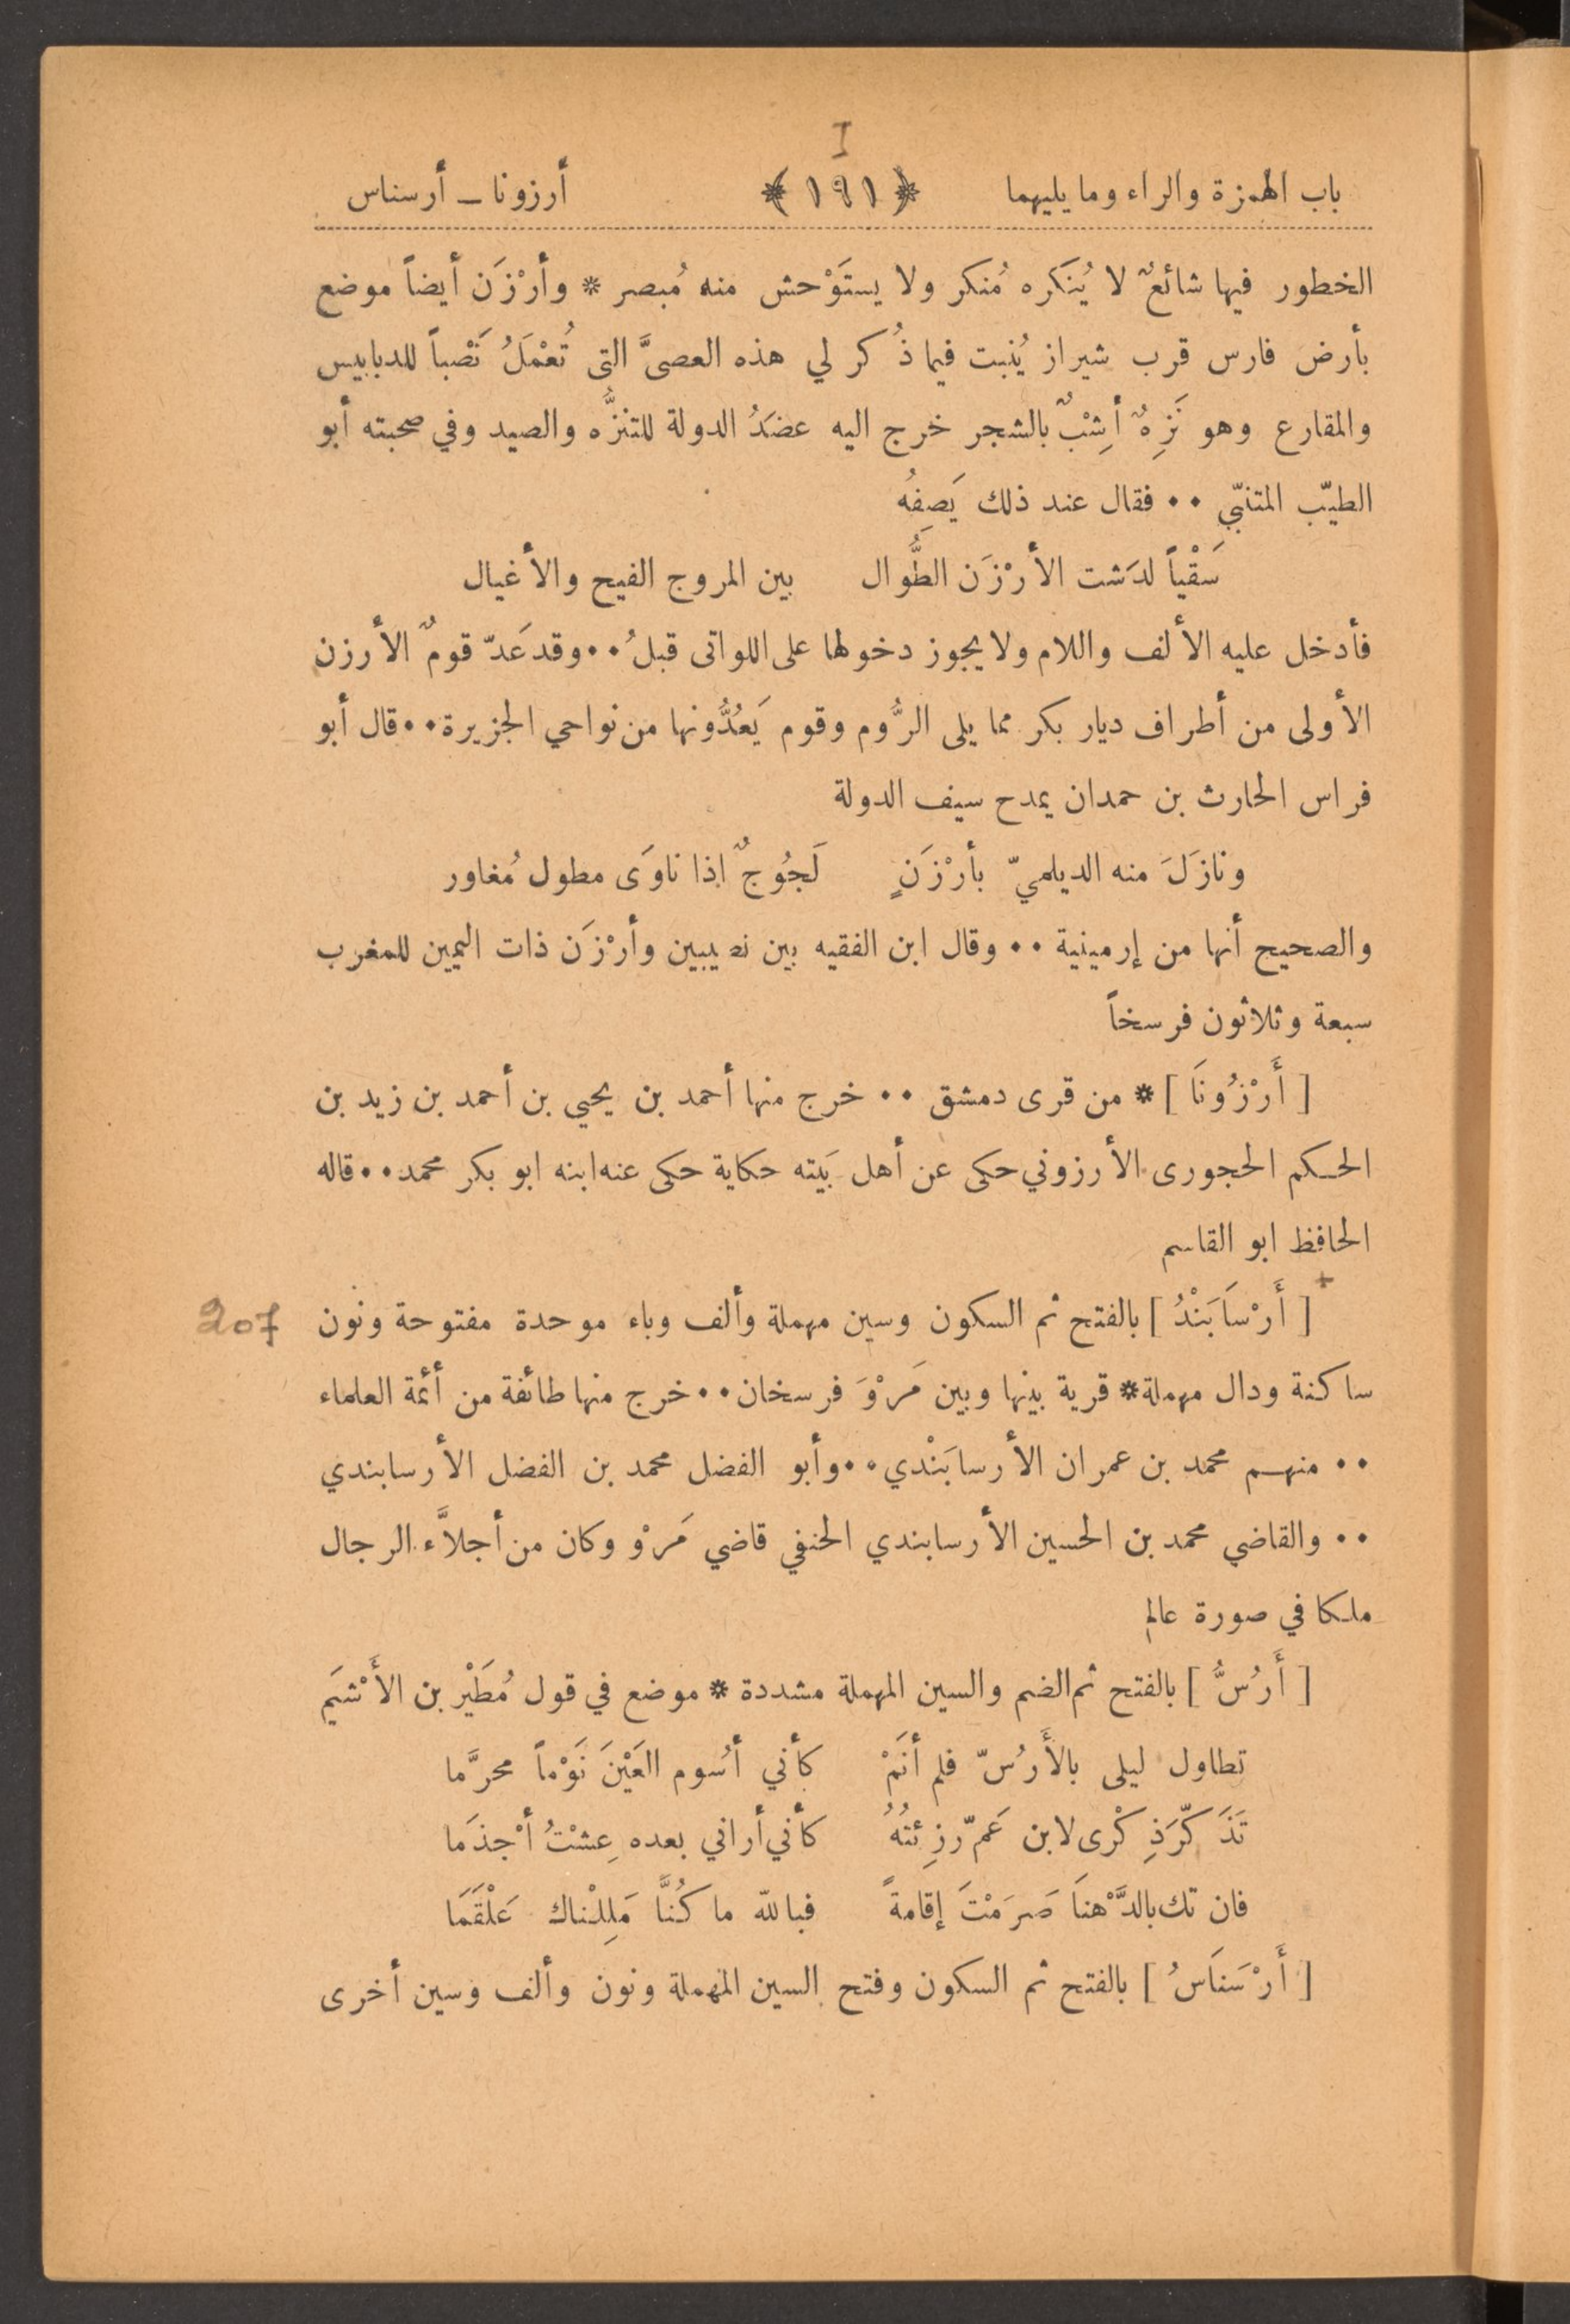 I
باب الهمزة والراء وما يليهما ﴿ ١٩١ ﴾ أرزونا ـ أرسناس
الخطور فيها شائعٌ لا يُنكَره مُنكر ولا يستَوْحش منه مُبصر * وأرْزَن أيضاً موضع
بأرض فارس قرب شيراز يُنبت فيما ذُكر لي هذه العصىَّ التى تُعْمَلُ نَصْباً للدبابيس
والمقارع وهو نَزِهٌ أَشِبٌ بالشجر خرج اليه عضدُ الدولة للتنزُّه والصيد وفي صحبته أبو
الطيّب المتنبّي ٠٠ فقال عند ذلك يَصِفُه
سَقْياً لدَشت الأرْزَن الطُّوال بين المروج الفيح والأغيال
فأدخل عليه الألف واللام ولا يجوز دخولها على اللواتى قبلُ ٠٠ وقد عَدّ قومٌ الأرزن
الأولى من أطراف ديار بكر مما يلى الرُّوم وقوم يَعُدُّونها من نواحي الجزيرة ٠٠ قال أبو
فراس الحارث بن حمدان يمدح سيف الدولة
ونازَلَ منه الديلميّ بأرْزَنٍ لَجُوجٌ اذا ناوَى مطول مُغاور
والصحيح أنها من إرمينية ٠٠ وقال ابن الفقيه بين نصيبين وأرْزَن ذات اليمين للمغرب
سبعة وثلاثون فرسخاً
[ أَرْزُونَا ] * من قرى دمشق ٠٠ خرج منها أحمد بن يحيى بن أحمد بن زيد بن
الحكم الحجورى الأرزوني حكى عن أهل بَيته حكاية حكى عنه ابنه ابو بكر محمد ٠٠ قاله
الحافظ ابو القاسم
207 + [ أَرْسَابَنْدُ ] بالفتح ثم السكون وسين مهملة وألف وباء موحدة مفتوحة ونون
ساكنة ودال مهملة * قرية بينها وبين مَرْوَ فرسخان ٠٠ خرج منها طائفة من أئمة العلماء
٠٠ منهم محمد بن عمران الأرسابَنْدي ٠٠ وأبو الفضل محمد بن الفضل الأرسابندي
٠٠ والقاضي محمد بن الحسين الأرسابندي الحنفي قاضي مَرْو وكان من أجلاَّء الرجال
ملكا في صورة عالم
[ أَرُسُّ ] بالفتح ثم الضم والسين المهملة مشددة * موضع في قول مُطَيْر بن الأَشْيَم
تطاول ليلى بالأَرُسّ فلم أنَمْ كأني أسُوم العَيْنَ نَوْماً محرَّما
تَذَكّرَ ذِكْرى لابن عَمّ رزِئتُهُ كأني أراني بعده عِشْتُ أجْذَما
فان تك بالدَّهْنَا صَرَمْتَ إقامةً فبالله ما كُنَّا مَلِلْناك عَلْقَمَا
[ أَرْسَنَاسُ ] بالفتح ثم السكون وفتح السين المهملة ونون وألف وسين أخرى